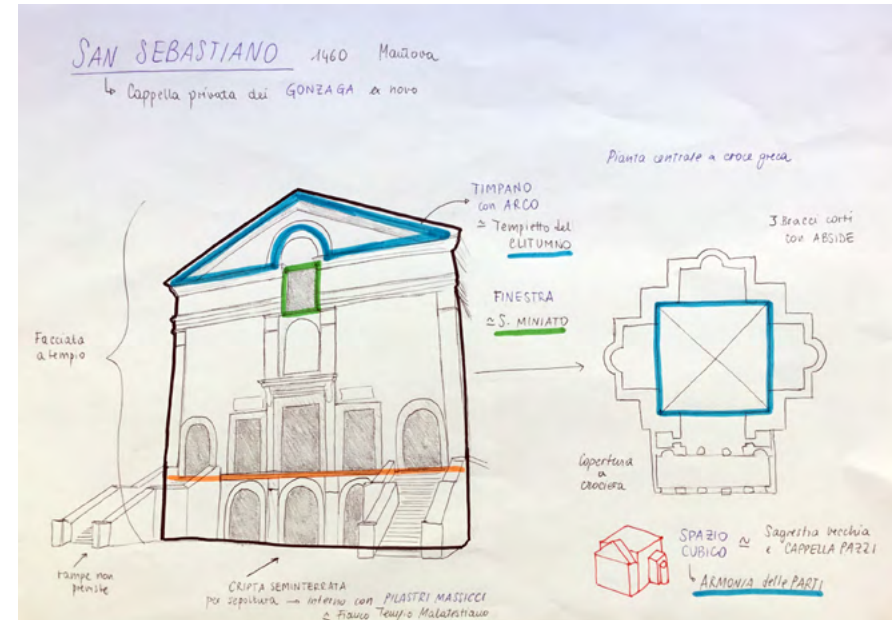 SAN SEBASTIANO 1460 Mantova
↳ Cappella privata dei GONZAGA ex novo
Pianta centrale a croce greca
TIMPANO
con ARCO
≃ Tempietto del
CLITUMNO
3 Bracci corti
con ABSIDE
FINESTRA
≃ S. MINIATO
Facciata
a tempio
Copertura
a
CROCIERA
SPAZIO
CUBICO
≃ Sagrestia Vecchia
e CAPPELLA PAZZI
↳ ARMONIA delle PARTI
rampe non
previste
CRIPTA SEMINTERRATA
per sepoltura → interno con PILASTRI MASSICCI
≃ Fianco Tempio Malatestiano